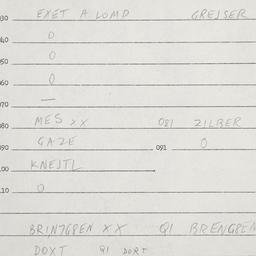 030 EXET A LOMD GREJSER
040 O
050 O
060 O
070 —
080 MES XX 081 ZILBER
090 GAZE 091 O
100 KNEJTL
110 O
BRINTGREN XX 91 BRENGREN
DOXT 91 DORT